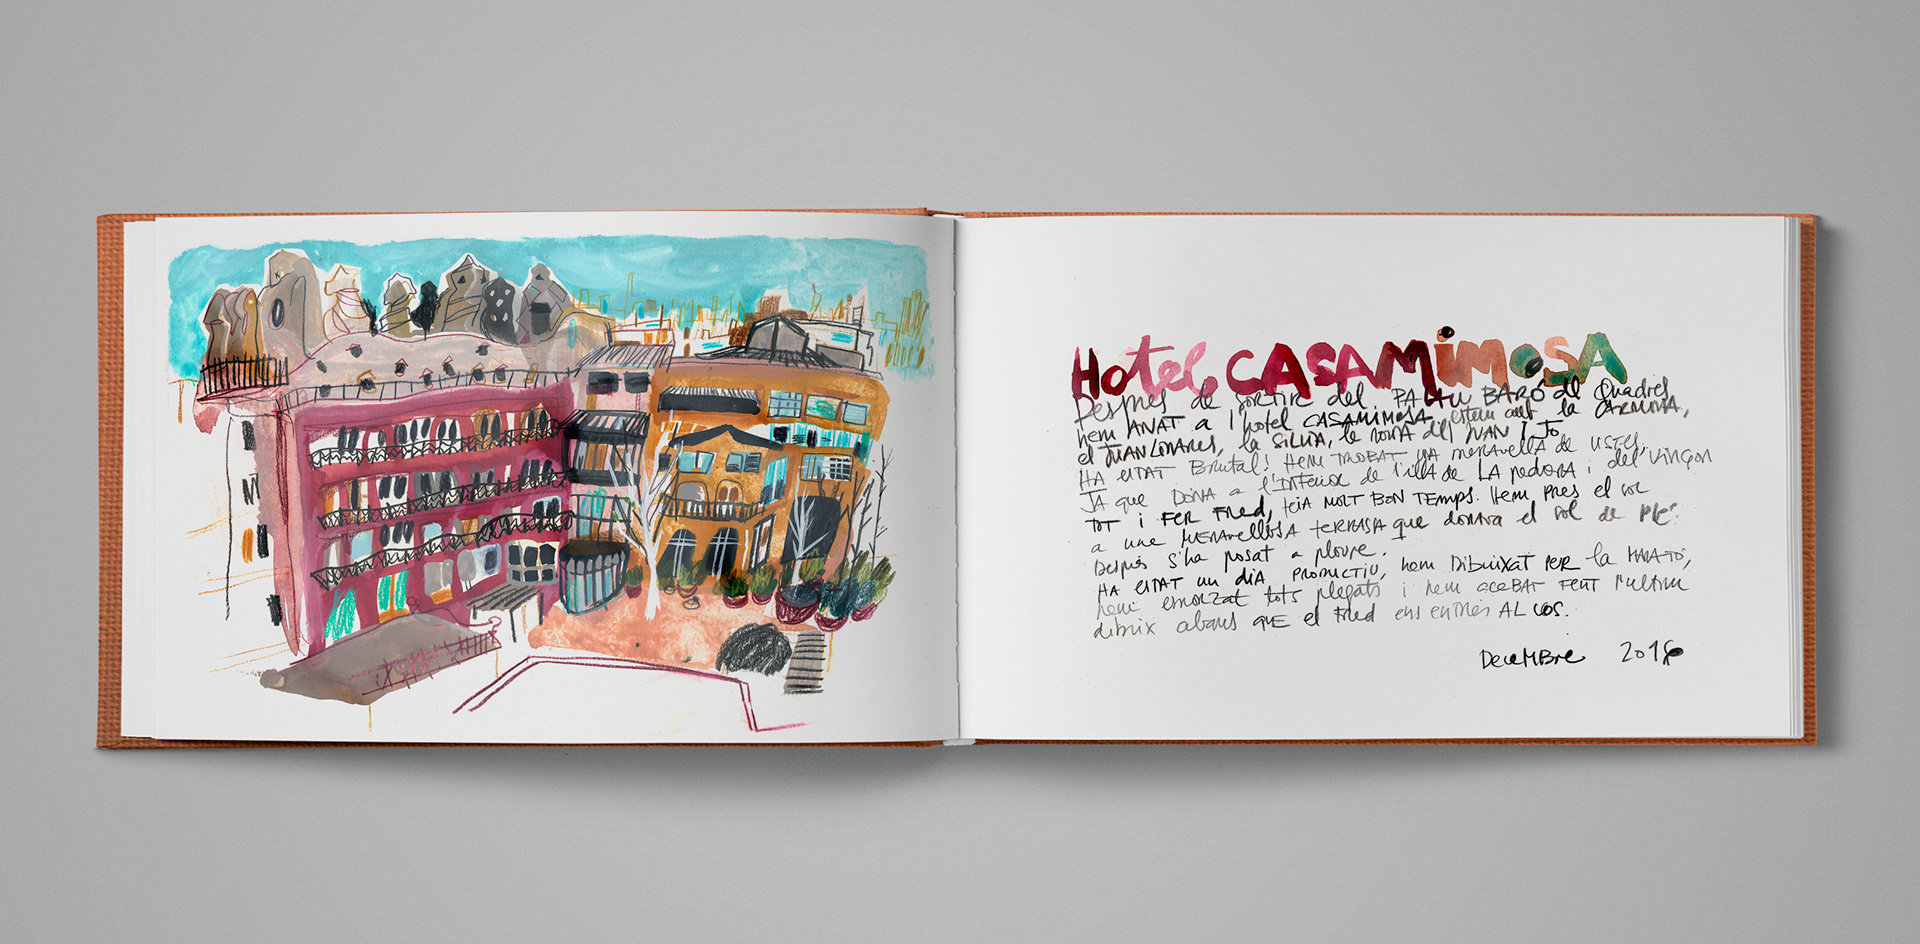 Hotel CASAMIMOSA
Després de sortir del PALAU BARÓ de Quadres
hem ANAT a l'hotel CASAMIMOSA, estem amb la CARMINA,
el JUAN LINARES, la SILVIA, la NORA del JUAN I JO.
HA ESTAT Brutal! Hem TROBAT UNA meravella de VISTES,
JA que DONA a l'INTERIOR de l'illa de LA PEDRERA i del VINÇON
TOT i FER FRED, feia MOLT BON TEMPS. Hem PRES el sol
a una MERAVELLOSA terrassa que donava el sol de ple.
Després s'ha posat a ploure.
HA ESTAT un dia PRODUCTIU, hem DIBUIXAT PER la MATÍ,
hem esmorzat tots plegats i hem acabat FENT l'últim
dibuix abans que el Fred ens entrés AL cos.
DeceMBre 2016